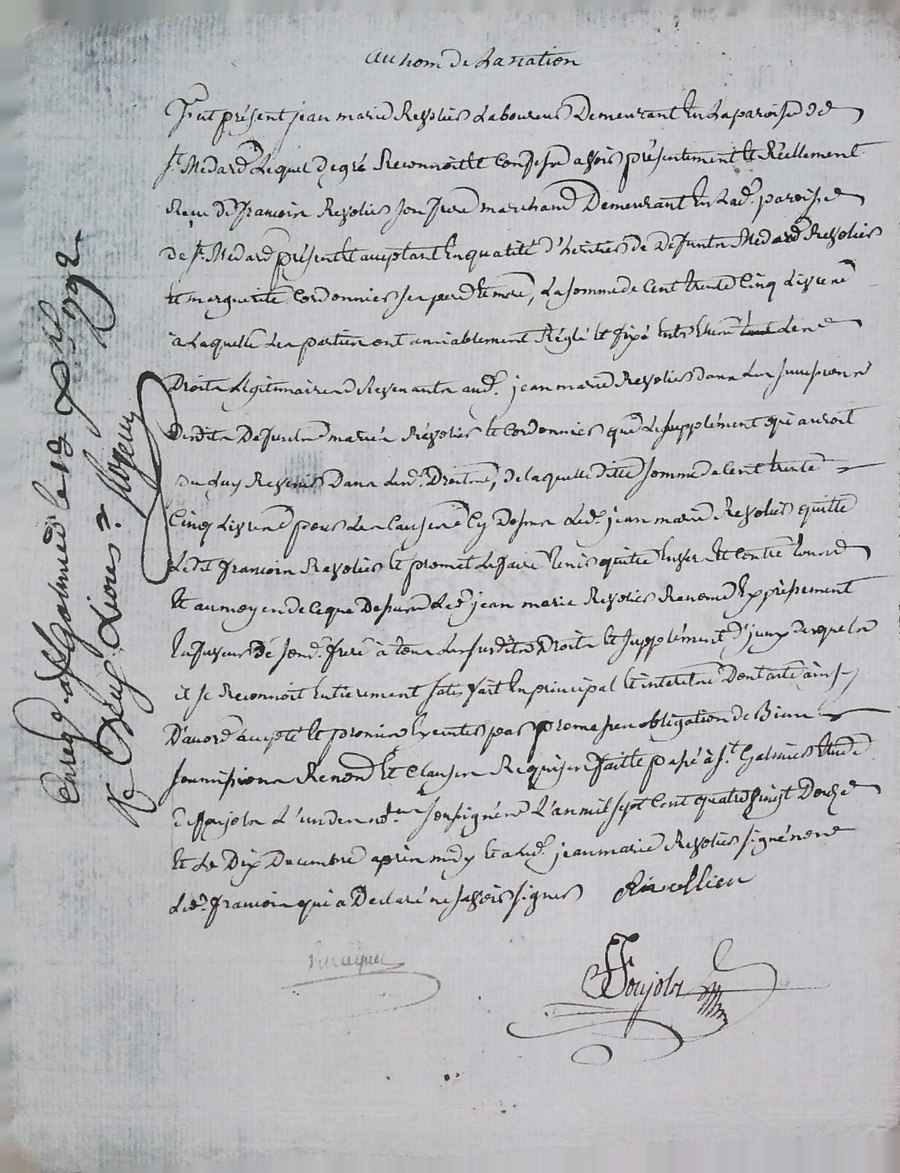 Au nom de La nation
Fut présent jean marie Revolier Laboureur Demeurant En La paroisse de
St Medard Lequel de gré Reconnoit et Confesse avoir présentement et Réellement
Reçu de francois Revolier son frere marchand Demeurant En Lad. paroisse
de St Medard présent et acceptant En qualité d'heritier de defunts Medard Revolier
et marguerite Cordonnier ses pere et mere, La somme de Cent trente Cinq Livres
à Laquelle Les parties ont amiablement Réglé et fixé Entr'elles tant Les
Droits Légitimaires Revenants aud. jean marie Revolier dans Les successions
desdits Defunts mariés Révolier et Cordonnier que Le supplément qui auroit
pu Luy Revenir Dans Lesd. Droits, de laquelle ditte somme de Cent trente
Cinq Livres pour Les Causes Cy Dessus Led. jean marie Revolier quitte
Ledit francois Revolier et promet Le faire tenir quitte Envers Et Contre tous
Et au moyen de Ce que Dessus Led. jean marie Revolier Renonce Expressement
En faveur de sond. frere à tous Les susdits Droits et supplément d'yceux desquels
il se Reconnoit Entierement satisfait En principal et interets Dont acte ainsy
D'accord accepté et promis Executer par promesse obligation de Biens
soumissions Renond. Et Clauses Requises fait et passé à St. Galmier Etude
de foujols L'un des nores soussignés L'an mil sept Cent quatre vingt Douze
Et Le Dix Decembre après midy Et a Led. jean marie Revolier signé non
Led. francois qui a Declaré ne savoir signer Revollier
foujols
Enreg. à St Galmier le 19 Xbre 1792
Rc Deux Livres